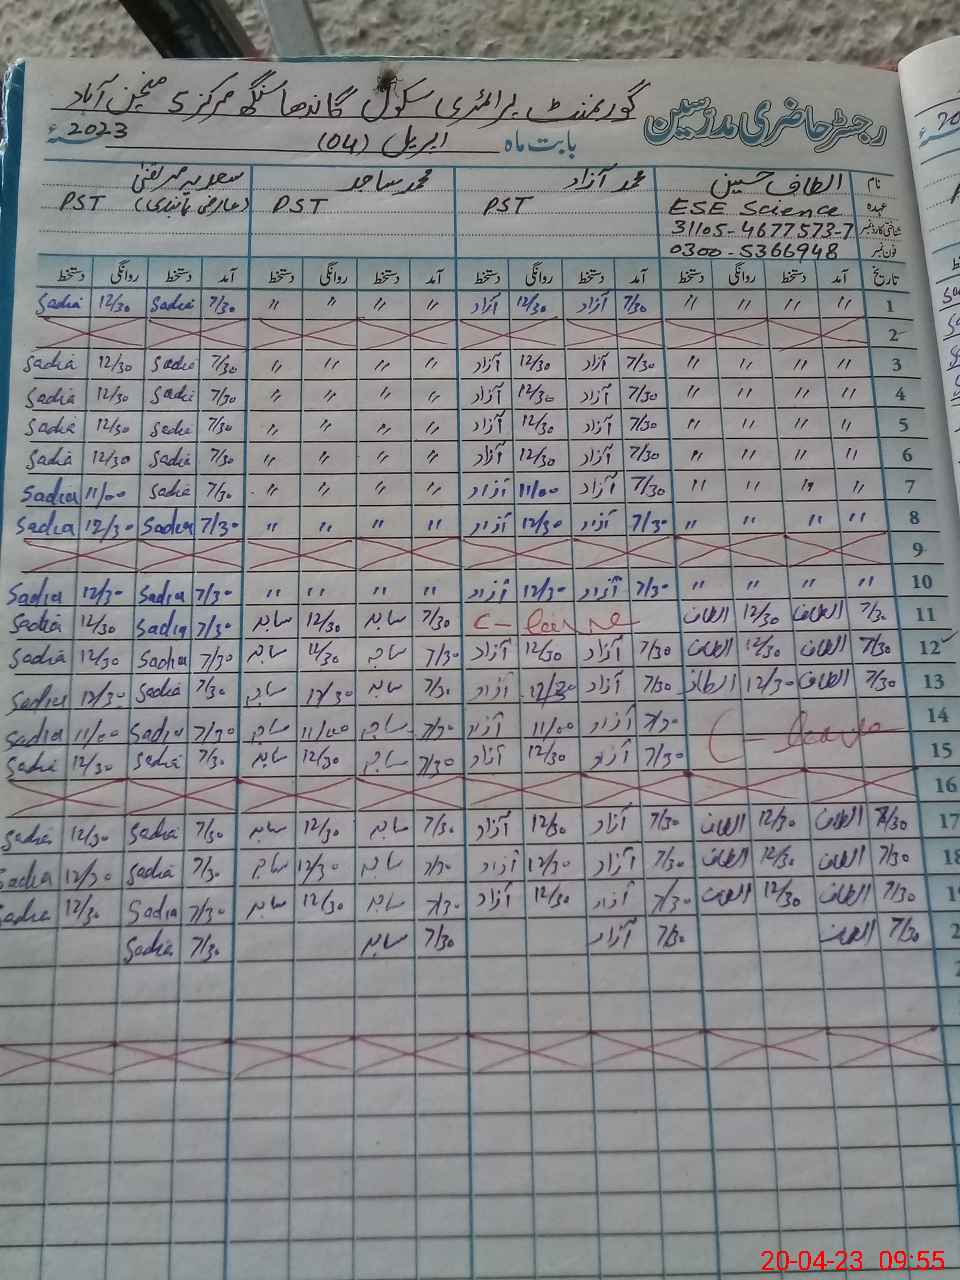 گورنمنٹ پرائمری سکول گاندھا سنگھ مرکز 5 منچن آباد
رجسٹر حاضری مدرسین
بابت ماہ اپریل (04) 2023ء
نام الطاف حسین محمد آزاد محمد ساجد سعدیہ
عہدہ ESE Science PST PST PST (عارضی
شناختی کارڈ نمبر 31105-4677573-7
فون نمبر 0300-5366948
تاریخ آمد دستخط روانگی دستخط آمد دستخط روانگی دستخط آمد دستخط روانگی دستخط آمد دستخط روانگی دستخط
1 〃 〃 〃 〃 7/30 آزاد 12/30 آزاد 〃 〃 〃 〃 7/30 Sadia 12/30 Sadia
2
3 〃 〃 〃 〃 7/30 آزاد 12/30 آزاد 〃 〃 〃 〃 7/30 Sadia 12/30 Sadia
4 〃 〃 〃 〃 7/30 آزاد 12/30 آزاد 〃 〃 〃 〃 7/30 Sadia 12/30 Sadia
5 〃 〃 〃 〃 7/30 آزاد 12/30 آزاد 〃 〃 〃 〃 7/30 Sadia 12/30 Sadia
6 〃 〃 〃 〃 7/30 آزاد 12/30 آزاد 〃 〃 〃 〃 7/30 Sadia 12/30 Sadia
7 〃 〃 〃 〃 7/30 آزاد 11/00 آزاد 〃 〃 〃 〃 7/30 Sadia 11/00 Sadia
8 〃 〃 〃 〃 7/30 آزاد 12/30 آزاد 〃 〃 〃 〃 7/30 Sadia 12/30 Sadia
9
10 〃 〃 〃 〃 7/30 آزاد 12/30 آزاد 〃 〃 〃 〃 7/30 Sadia 12/30 Sadia
11 7/30 الطاف 12/30 الطاف C-leave 7/30 ساجد 12/30 ساجد 7/30 Sadia 12/30 Sadia
12 7/30 الطاف 12/30 الطاف 7/30 آزاد 12/30 آزاد 7/30 ساجد 12/30 ساجد 7/30 Sadia 12/30 Sadia
13 7/30 الطاف 12/30 الطاف 7/30 آزاد 12/30 آزاد 7/30 ساجد 12/30 ساجد 7/30 Sadia 12/30 Sadia
14 C-leave 7/30 آزاد 11/00 آزاد 7/30 ساجد 11/00 ساجد 7/30 Sadia 11/00 Sadia
15 7/30 آزاد 12/30 آزاد 7/30 ساجد 12/30 ساجد 7/30 Sadia 12/30 Sadia
16
17 7/30 الطاف 12/30 الطاف 7/30 آزاد 12/30 آزاد 7/30 ساجد 12/30 ساجد 7/30 Sadia 12/30 Sadia
18 7/30 الطاف 12/30 الطاف 7/30 آزاد 12/30 آزاد 7/30 ساجد 12/30 ساجد 7/30 Sadia 12/30 Sadia
19 7/30 الطاف 12/30 الطاف 7/30 آزاد 12/30 آزاد 7/30 ساجد 12/30 ساجد 7/30 Sadia 12/30 Sadia
2 7/30 الطاف 7/30 آزاد 7/30 ساجد 7/30 Sadia
20-04-23 09:55